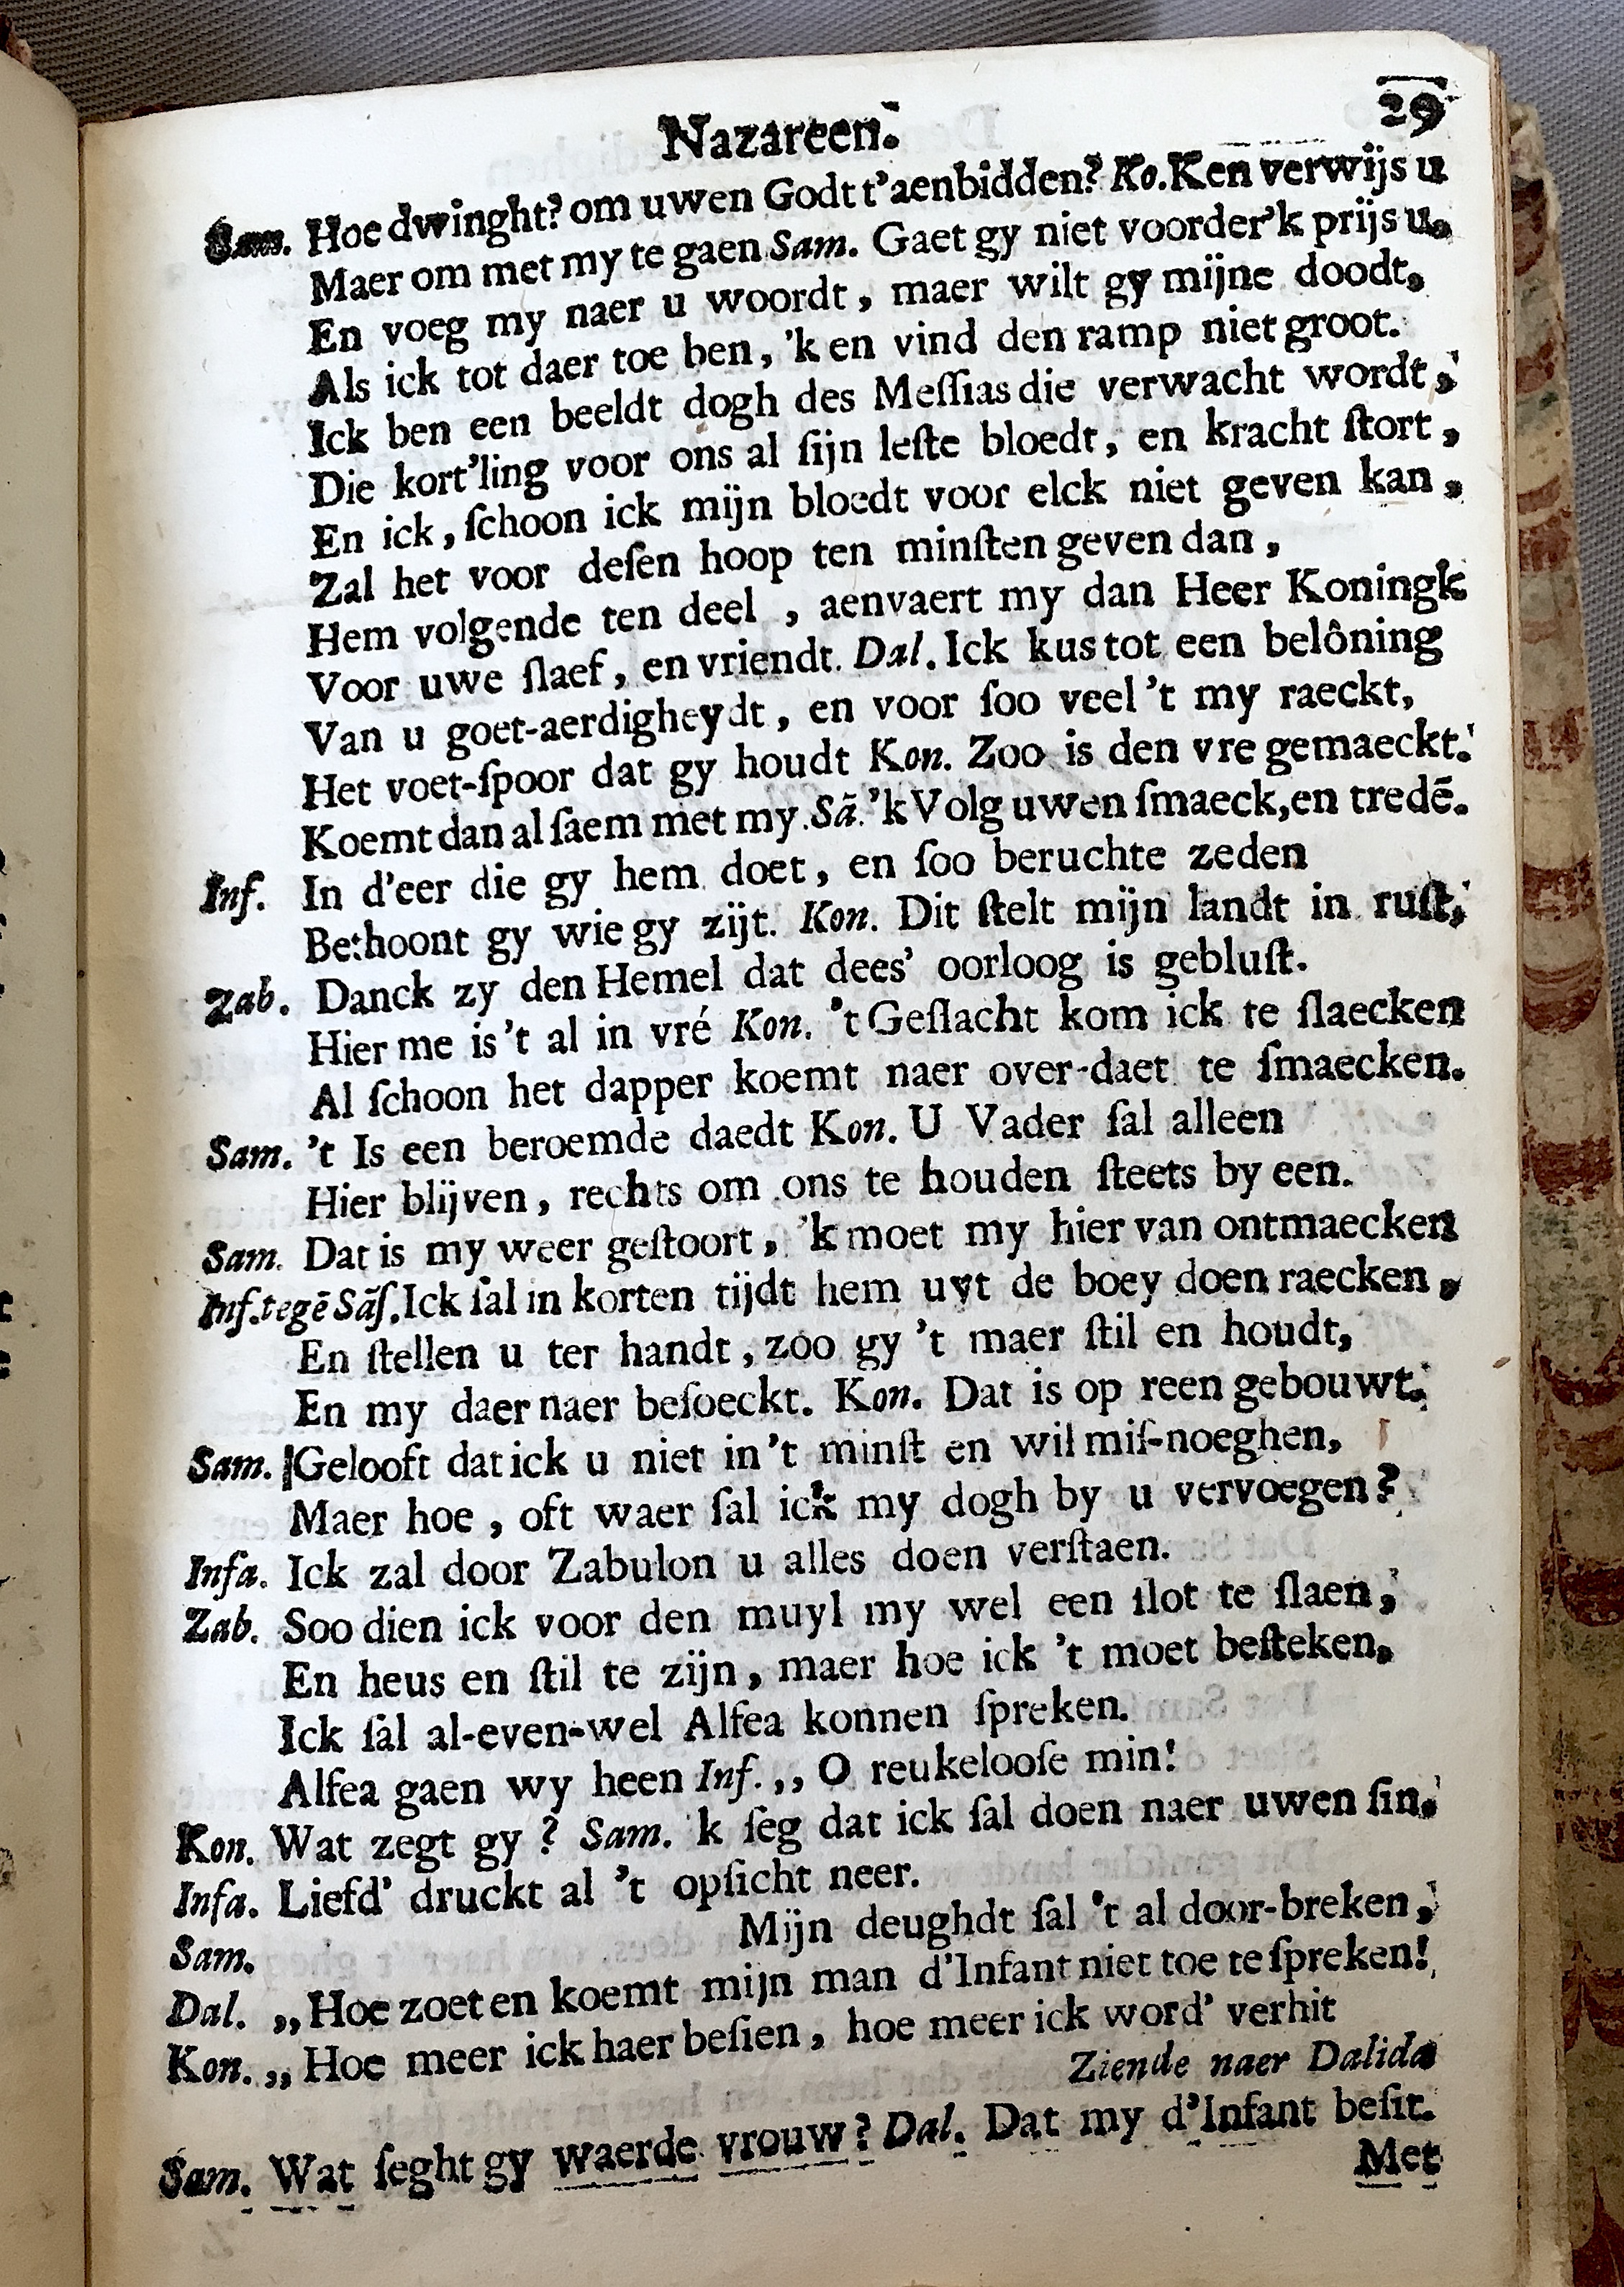 Nazareen. 29
Sam. Hoe dwinght? om uwen Godt t'aenbidden? Ko. Ken verwijs u
Maer om met my te gaen Sam. Gaet gy niet voorder 'k prijs u.
En voeg my naer u woordt, maer wilt gy mijne doodt,
Als ick tot daer toe ben, 'k en vind den ramp niet groot.
Ick ben een beeldt dogh des Meſſias die verwacht wordt,
Die kort'ling voor ons al ſijn leſte bloedt, en kracht ſtort,
En ick, ſchoon ick mijn bloedt voor elck niet geven kan,
Zal het voor deſen hoop ten minſten geven dan,
Hem volgende ten deel, aenvaert my dan Heer Koningk
Voor uwe ſlaef, en vriendt. Dal. Ick kus tot een belôning
Van u goet-aerdigheydt, en voor ſoo veel 't my raeckt,
Het voet-ſpoor dat gy houdt Kon. Zoo is den vre gemaeckt.
Koemt dan al ſaem met my. Sā. 'k Volg uwen ſmaeck, en tredē.
Inf. In d'eer die gy hem doet, en ſoo beruchte zeden
Bethoont gy wie gy zijt. Kon. Dit ſtelt mijn landt in ruſt,
Zab. Danck zy den Hemel dat dees' oorloog is gebluſt.
Hier me is 't al in vré Kon. 't Geſlacht kom ick te ſlaecken
Al ſchoon het dapper koemt naer over-daet te ſmaecken.
Sam. 't Is een beroemde daedt Kon. U Vader ſal alleen
Hier blijven, rechts om ons te houden ſteets by een.
Sam. Dat is my weer geſtoort, 'k moet my hier van ontmaecken
Inf. tegē Sāſ. Ick ſal in korten tijdt hem uyt de boey doen raecken,
En ſtellen u ter handt, zoo gy 't maer ſtil en houdt,
En my daer naer beſoeckt. Kon. Dat is op reen gebouwt.
Sam. Gelooft dat ick u niet in 't minſt en wil miſ-noeghen,
Maer hoe, oft waer ſal ick my dogh by u vervoegen?
Infa. Ick zal door Zabulon u alles doen verſtaen.
Zab. Soo dien ick voor den muyl my wel een ſlot te ſlaen,
En heus en ſtil te zijn, maer hoe ick 't moet beſteken,
Ick ſal al-even-wel Alfea konnen ſpreken.
Alfea gaen wy heen Inf. ,, O reukelooſe min!
Kon. Wat zegt gy? Sam. 'k ſeg dat ick ſal doen naer uwen ſin.
Infa. Liefd' druckt al 't opſicht neer.
Sam. Mijn deughdt ſal 't al door-breken,
Dal. ,, Hoe zoet en koemt mijn man d'Infant niet toe te ſpreken!
Kon. ,, Hoe meer ick haer beſien, hoe meer ick word' verhit
Ziende naer Dalida
Sam. Wat ſeght gy waerde vrouw? Dal. Dat my d'Infant beſit.
Met